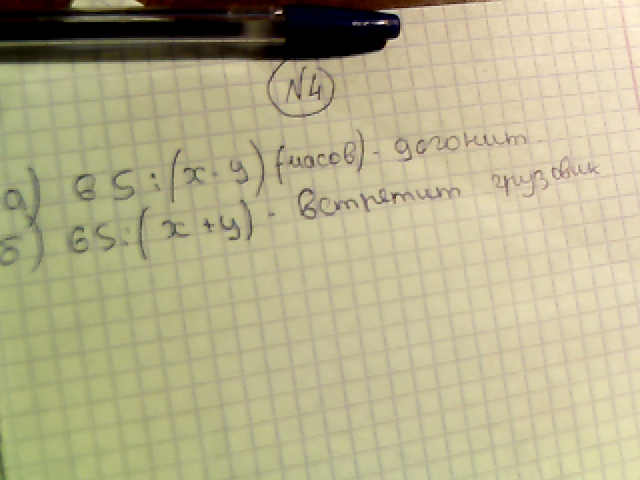 N4
а) 65:(x-y) (часов) - догонит
б) 65:(x+y) - встретит грузовик